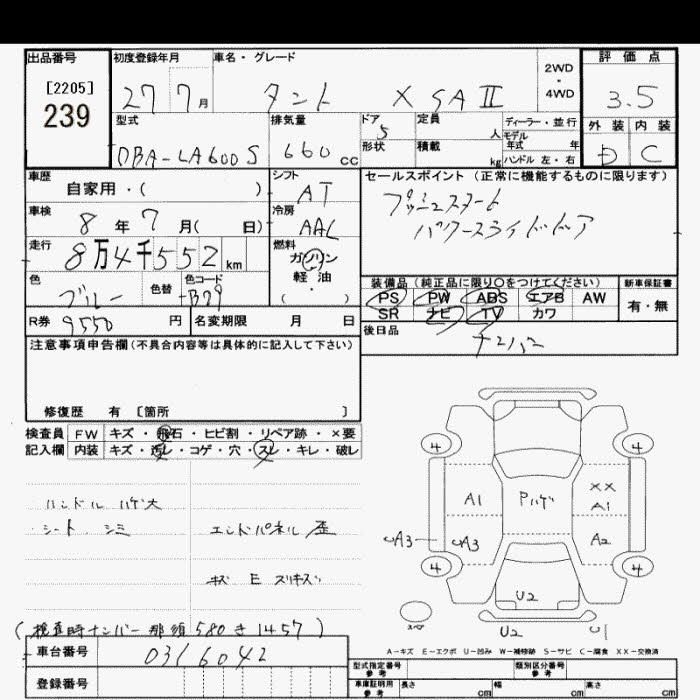 出品番号 初度登録年月 車名・グレード 2WD・4WD 評価点
[2205] 239 27 7月 タント X SAⅡ 3.5
型式 排気量 ドア 定員 人 ディーラー・並行 外装 内装
DBA-LA600S 660cc 5 形状 積載 kg モデル年式 年 ハンドル 左・右 D C
車歴 シフト セールスポイント (正常に機能するものに限ります)
自家用・( ) AT プッシュスタート
車検 冷房 パワースライドドア
8年7月( 日) AAC
走行 燃料
8万4千552km ガソリン
色 色替 色コード 軽・油 装備品(純正品に限り〇をつけてください) 新車保証書
ブルー B79 ( ・ ) PS PW ABS エアB AW 有・無
R券 9550円 名変期限 月 日 SR ナビ TV カワ
注意事項申告欄(不具合内容等は具体的に記入して下さい) 後日品
ナンバー
修復歴 有 〔箇所 〕
検査員 FW キズ・飛石・ヒビ割・リペア跡・×要
記入欄 内装 キズ・汚レ・コゲ・穴・スレ・キレ・破レ
ハンドル ハゲ大
シート シミ エンドパネル 歪
キズ E スリキズ
4 4
A1 Pハゲ XX A1
A3 A3 A2
4 4
U2
U2 U1
(検査時ナンバー 那須 580 き 1457)
A-キズ E-エクボ U-凹み W-補修跡 S-サビ C-腐食 XX-交換済
車台番号 0316042 型式指定番号 参考 類別区分番号 参考
登録番号 車庫証明用 参考 長さ cm 幅 cm 高さ cm